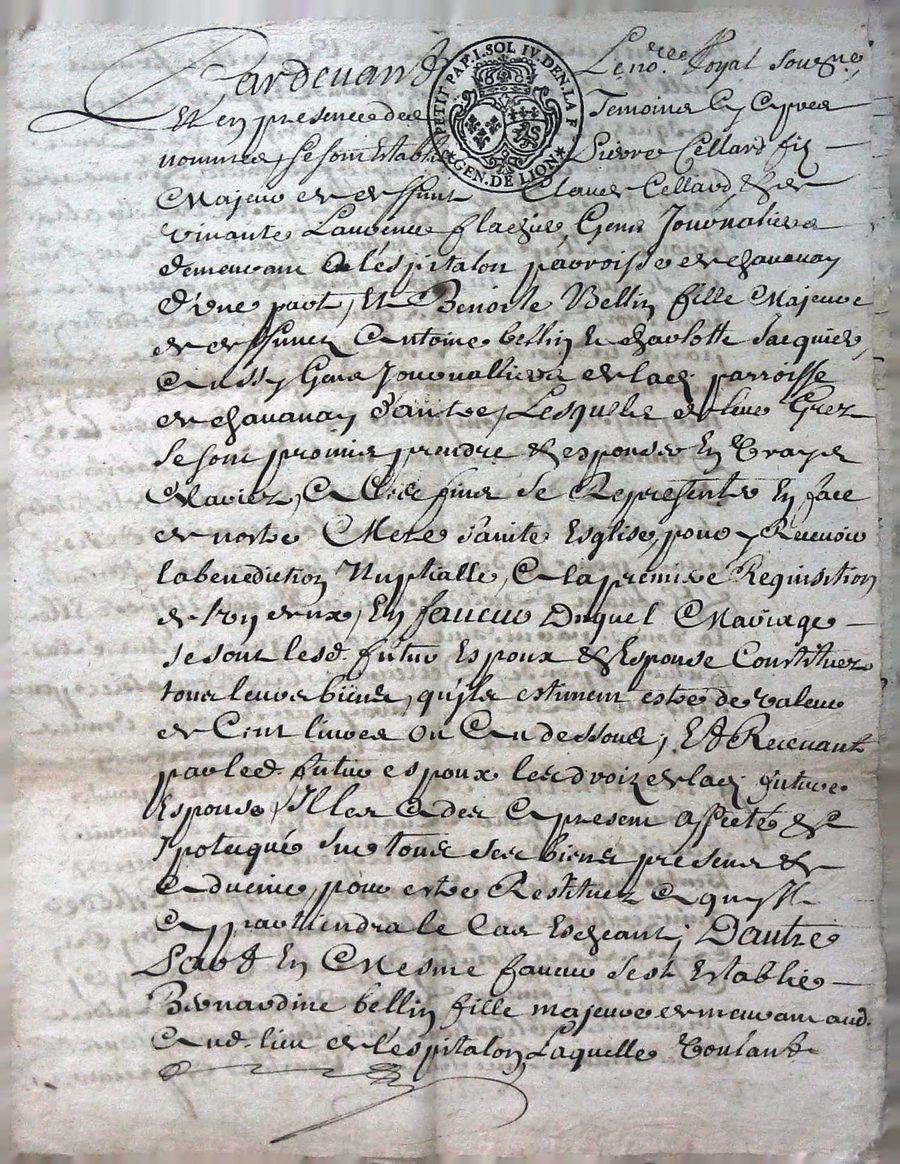 Pardevant Le no.re Royal soussigné
PETIT PAP. I. SOL IV. DEN. LA F
GEN. DE LION
Et en presence des Temoins cy apres
nommes, se sont establi Pierre Cellard fils
Majeur de deffunt Claude Cellard, & de
vivante Laurence flachier, Gens Journaliers
demeurant a l'espitalon parroisse de chavanay
d'une part, Et Benoiste Bellin fille Majeure
de deffunct Antoine bellin & charlotte Jacquier,
aussy Gens Journalliers de lad. parroisse
de chavanay d'autre, Lesquels de leur Grez
se sont promis prendre & espouser En vrays
Mariez, A Ces fins se Representer En face
de notre Mere Sainte Esglise, pour y Recevoir
la benediction Nuptialle, A la premiere Requisition
de l'un d'eux, En faveur Duquel Mariage
se sont lesd. futur Espoux & Espouse Constituez
tous leurs biens, qu'ils estiment estre de valeur
de Cent livres ou Au dessous, Et Recevant
par led. futur espoux les droitz de lad. future
Espouse, Il les a des a present affecté &
Ipotequé sur tous ses biens presens &
advenir, pour estre Restituez a qui Il
appartiendra le Cas Escheant; Dautre
Part En Mesme faveur s'est Establie
Bernardine bellin fille majeure demeurant aud.
Aud. lieu de l'espitalon, Laquelle voulant